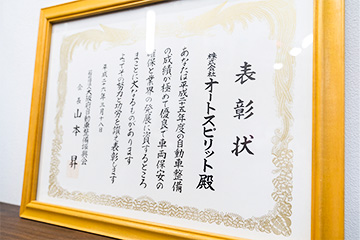 表彰状
株式会社 オートスピリット殿
あなたは平成二十五年度の自動車整備
の成績が極めて優良で車両保安の
確保と業界の発展に資するところ
まことに大なるものがあります
よってその努力と功労を讃え表彰します
平成二十六年三月十八日
大阪府自動車整備振興会
会長 山本 昇